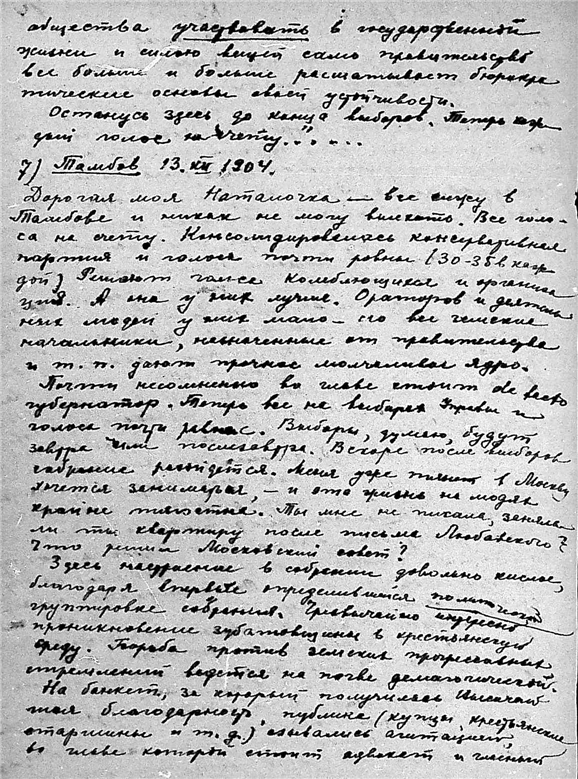 общества участвовать в государственной
жизни и силою вещей само правительство
все больше и больше расшатывает бюрокра
тические основы своей устойчивости.
Останусь здесь до конца выборов. Теперь каж-
дый голос на счету."....
7) Тамбов 13.XII 1904.
Дорогая моя Наталочка — все сижу в
Тамбове и никак не могу выехать. Все голо-
са на счету. Консолидировалась консервативная
партия и голоса почти равны (30-35 в каж-
дой) Решают голоса колеблющихся и организа
ция. А она у них лучше. Ораторов и деятель-
ных людей у них мало — но все земские
начальники, назначенные от правительства
и т. п. дают прочное молчаливое ядро.
Почти несомненно во главе стоит de facto
губернатор. Теперь все на выборах Управы и
голоса почти равны. Выборы, думаю, будут
завтра или послезавтра. Вскоре после выборов
собрание разойдется. Меня уже тянет в Москву
хочется заниматься, — и эта жизнь на людях
крайне тягостна. Ты мне не писала, заняла
ли ты квартиру после письма Любавского?
Что решил Московский совет?
Здесь настроение в собрании довольно кислое,
благодаря впервые определившейся политической
группировке собрания. Чрезвычайно интересно
проникновение зубатовщины в крестьянскую
среду. Борьба против земских прогрессивных
стремлений ведется на почве демагогической.
На банкет, за который получилась Высочай
шая благодарность, публика (купцы, крестьянские
старшины и т. д.) сзывались агитацией,
во главе которой стоит адвокат и гласный